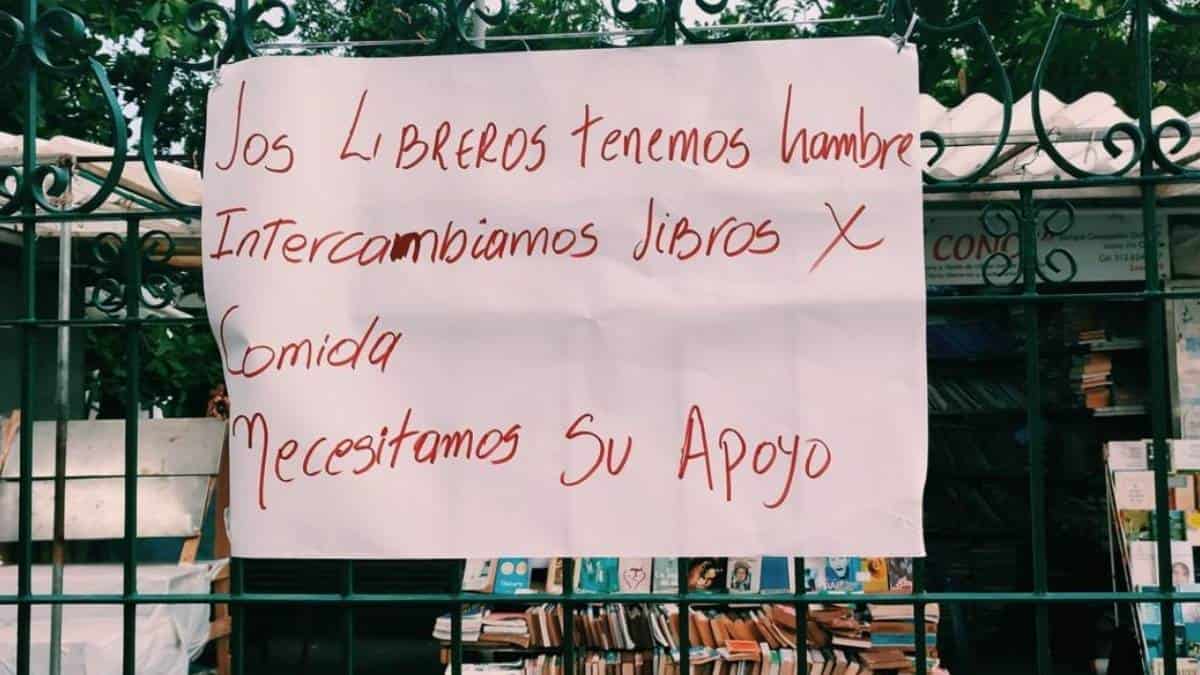 Los LIBREROS tenemos hambre
Intercambiamos libros X
Comida
Necesitamos Su Apoyo
CONO